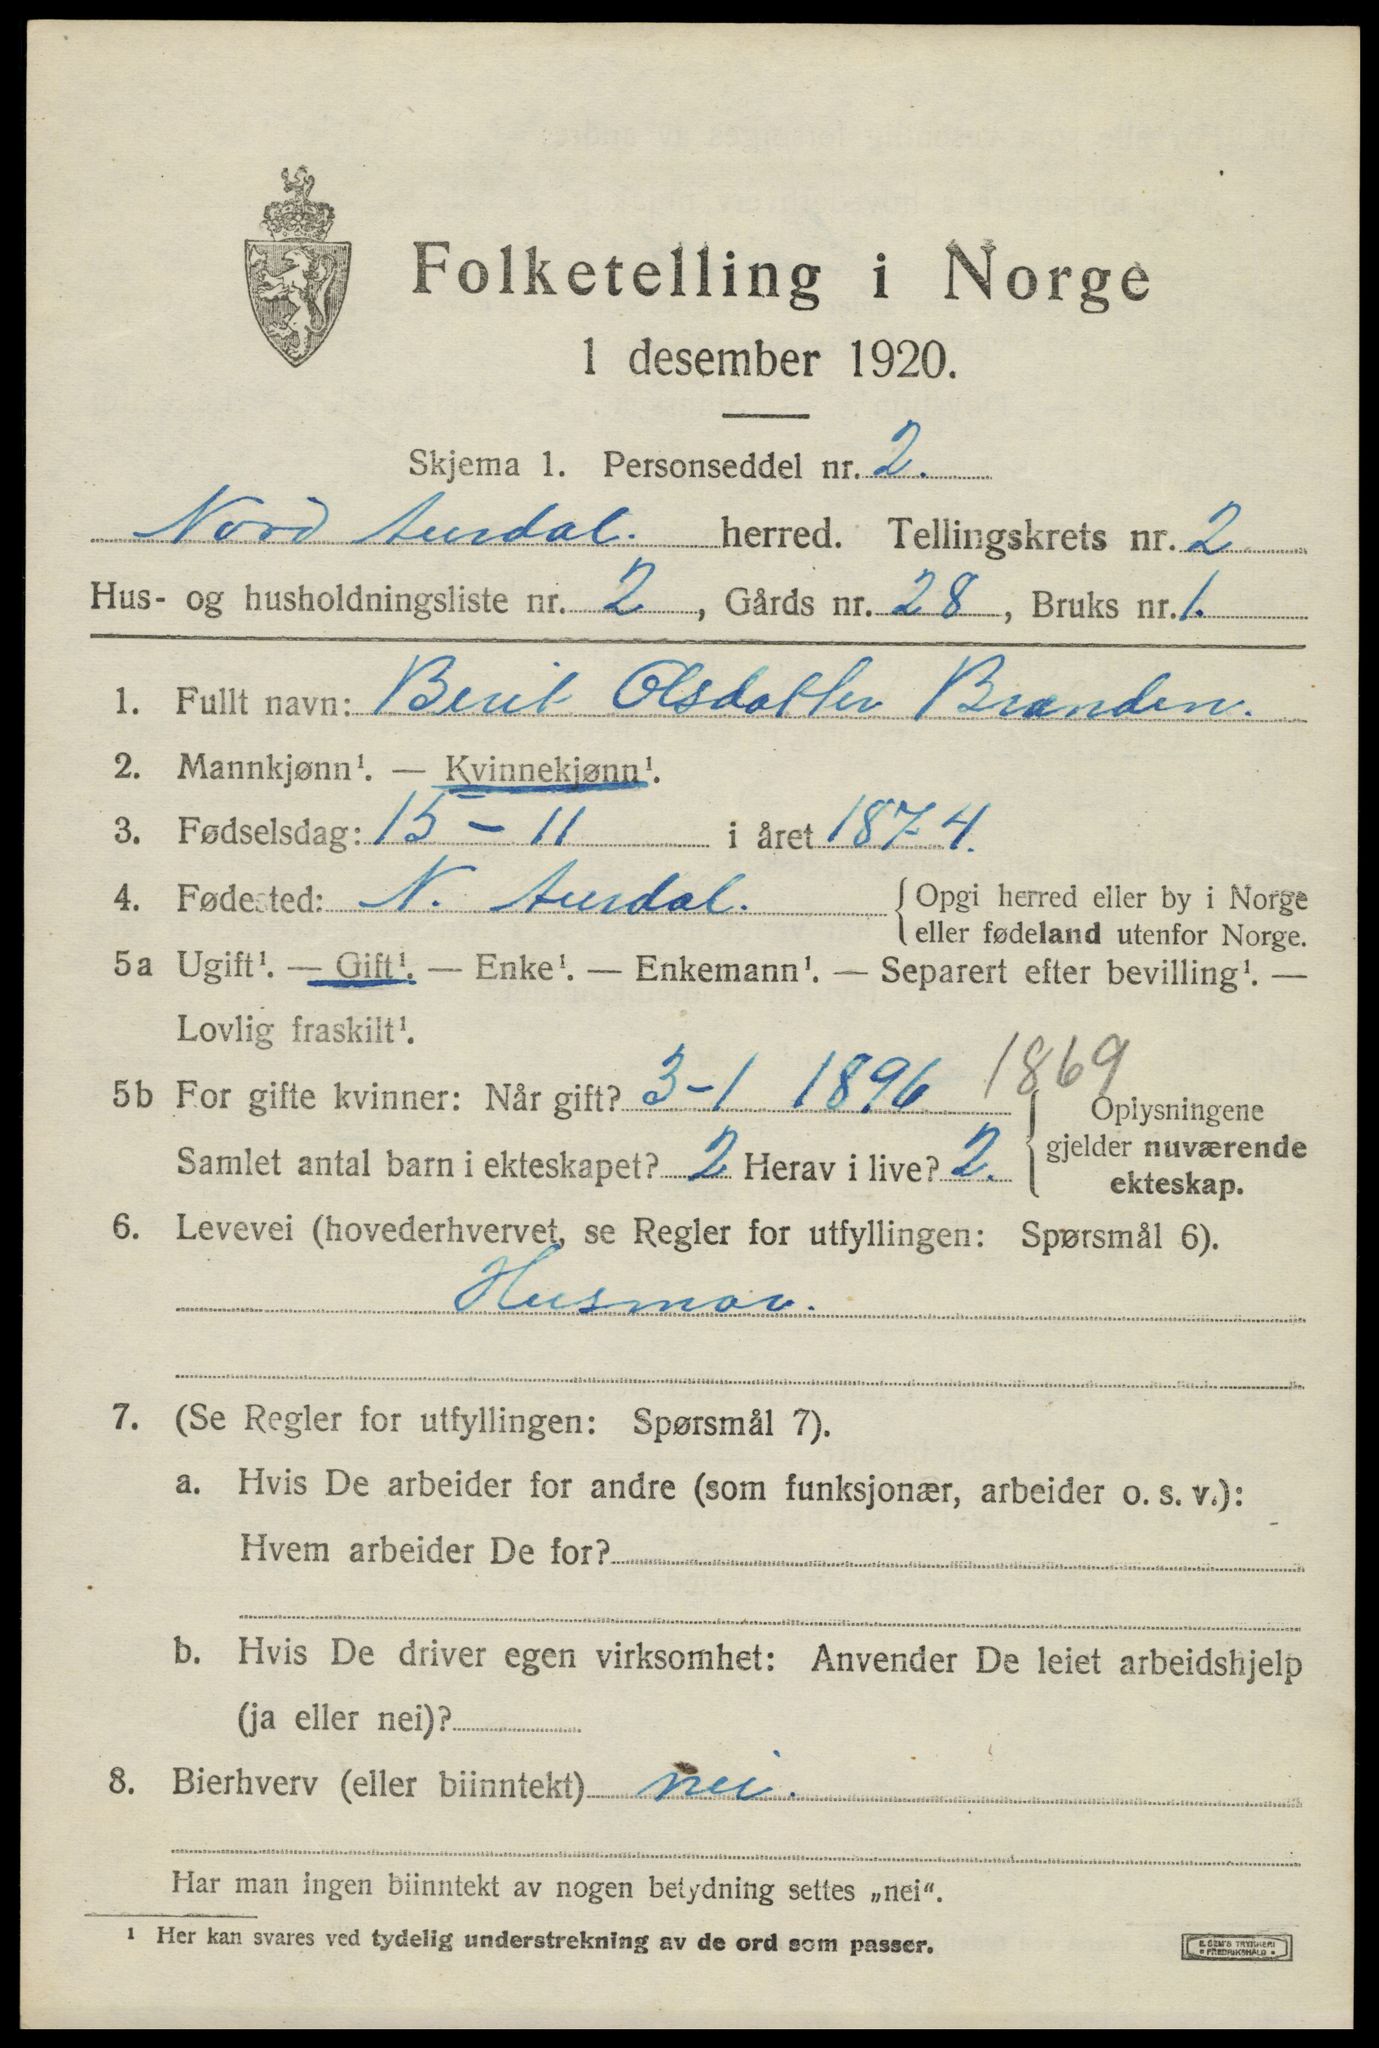 Folketelling i Norge
1 desember 1920.
Skjema 1. Personseddel nr. 2.
Nord Aurdal. herred. Tellingskrets nr. 2
Hus- og husholdningsliste nr. 2, Gårds nr. 28, Bruks nr. 1.
1. Fullt navn: Berit Olsdatter Branden.
2. Mannkjønn¹. — Kvinnekjønn¹.
3. Fødselsdag: 15 - 11 i året 1874.
4. Fødested: N. Aurdal. { Opgi herred eller by i Norge
eller fødeland utenfor Norge.
5a Ugift¹. — Gift¹. — Enke¹. — Enkemann¹. — Separert efter bevilling¹. —
Lovlig fraskilt¹.
1869
5b For gifte kvinner: Når gift? 3-1 1896 { Oplysningene
gjelder nuværende
Samlet antal barn i ekteskapet? 2 Herav i live? 2.
ekteskap.
6. Levevei (hovederhvervet, se Regler for utfyllingen: Spørsmål 6).
Husmor.
7. (Se Regler for utfyllingen: Spørsmål 7).
a. Hvis De arbeider for andre (som funksjonær, arbeider o. s. v.):
Hvem arbeider De for?
b. Hvis De driver egen virksomhet: Anvender De leiet arbeidshjelp
(ja eller nei)?
8. Bierhverv (eller biinntekt) nei.
Har man ingen biinntekt av nogen betydning settes „nei“.
¹ Her kan svares ved tydelig understrekning av de ord som passer.
E. SEM'S TRYKKERI
• FREDRIKSHALD •